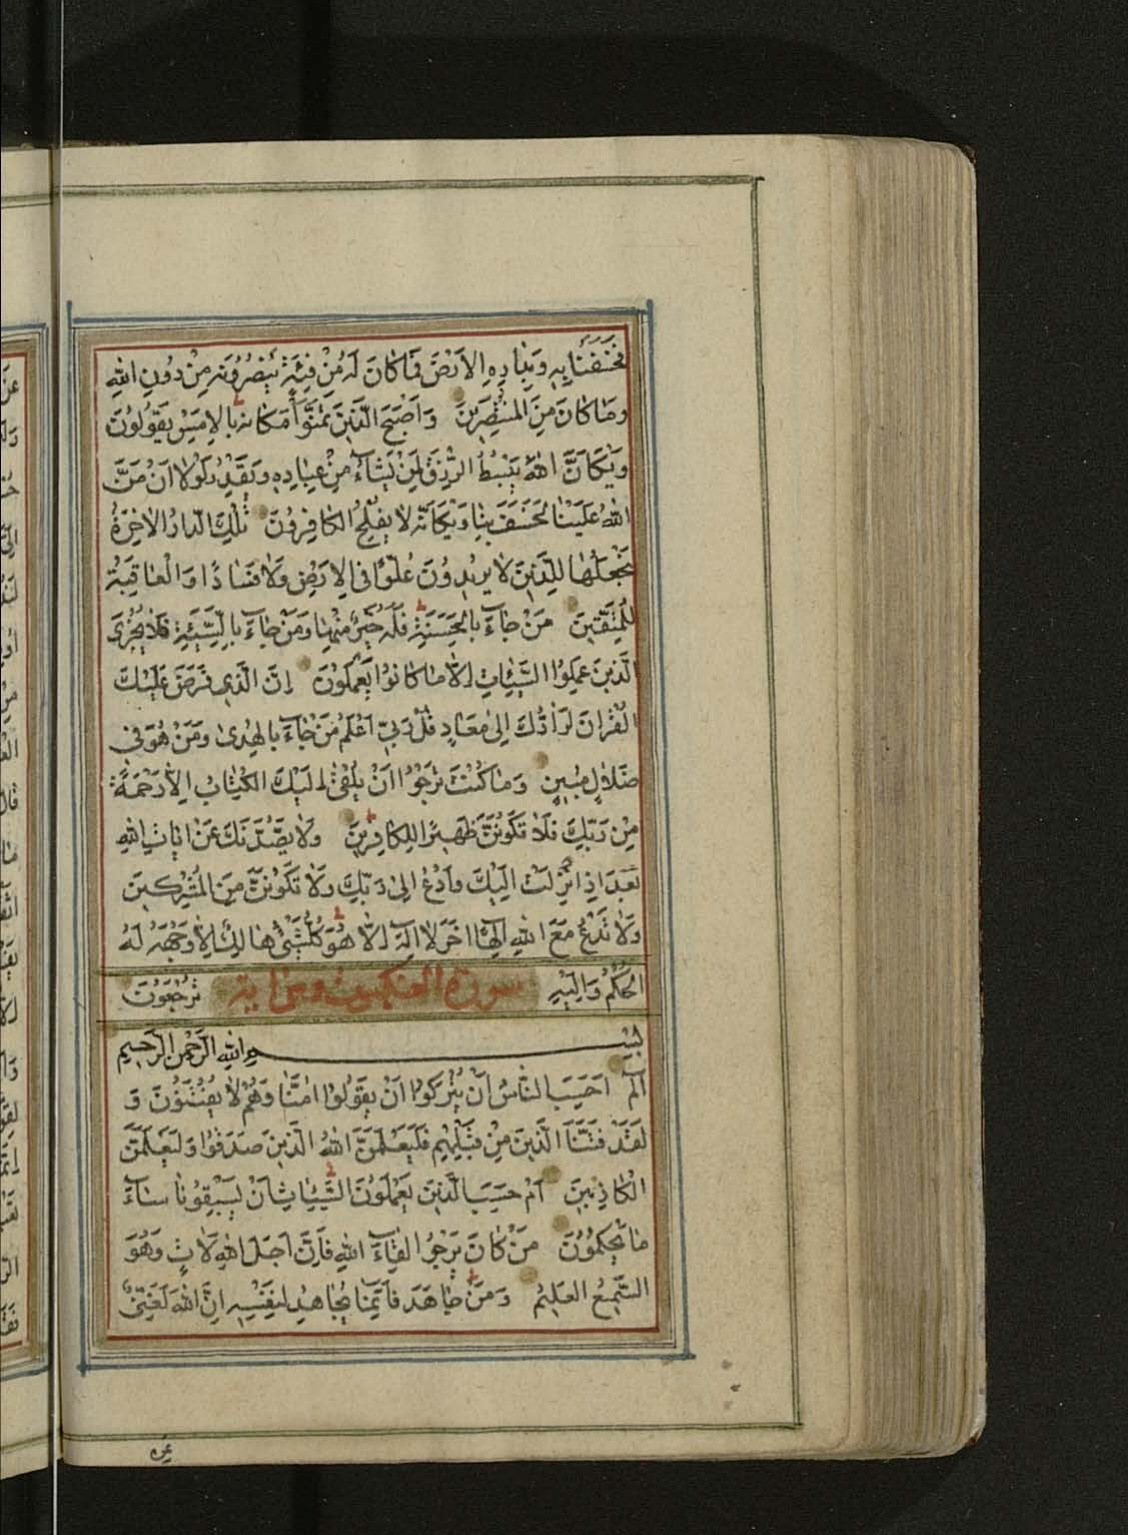 فَخَسَفْنَا بِهِ وَبِدَارِهِ الْاَرْضَ فَمَا كَانَ لَهُ مِنْ فِئَةٍ يَنْصُرُونَهُ مِنْ دُونِ اللهِ
وَمَا كَانَ مِنَ الْمُنْتَصِرِينَ وَاَصْبَحَ الَّذِينَ تَمَنَّوْا مَكَانَهُ بِالْاَمْسِ يَقُولُونَ
وَيْكَاَنَّ اللهَ يَبْسُطُ الرِّزْقَ لِمَنْ يَشَاءُ مِنْ عِبَادِهِ وَيَقْدِرُ لَوْلَا اَنْ مَنَّ
اللهُ عَلَيْنَا لَخَسَفَ بِنَا وَيْكَاَنَّهُ لَا يُفْلِحُ الْكَافِرُونَ تِلْكَ الدَّارُ الْاٰخِرَةُ
نَجْعَلُهَا لِلَّذِينَ لَا يُرِيدُونَ عُلُوًّا فِي الْاَرْضِ وَلَا فَسَادًا وَالْعَاقِبَةُ
لِلْمُتَّقِينَ مَنْ جَاءَ بِالْحَسَنَةِ فَلَهُ خَيْرٌ مِنْهَا وَمَنْ جَاءَ بِالسَّيِّئَةِ فَلَا يُجْزَى
الَّذِينَ عَمِلُوا السَّيِّئَاتِ اِلَّا مَا كَانُوا يَعْمَلُونَ اِنَّ الَّذِي فَرَضَ عَلَيْكَ
الْقُرْاٰنَ لَرَادُّكَ اِلَى مَعَادٍ قُلْ رَبِّي اَعْلَمُ مَنْ جَاءَ بِالْهُدَى وَمَنْ هُوَ فِي
ضَلَالٍ مُبِينٍ وَمَا كُنْتَ تَرْجُوا اَنْ يُلْقَى اِلَيْكَ الْكِتَابُ اِلَّا رَحْمَةً
مِنْ رَبِّكَ فَلَا تَكُونَنَّ ظَهِيرًا لِلْكَافِرِينَ وَلَا يَصُدُّنَّكَ عَنْ اٰيَاتِ اللهِ
بَعْدَ اِذْ اُنْزِلَتْ اِلَيْكَ وَادْعُ اِلَى رَبِّكَ وَلَا تَكُونَنَّ مِنَ الْمُشْرِكِينَ
وَلَا تَدْعُ مَعَ اللهِ اِلٰهًا اٰخَرَ لَا اِلٰهَ اِلَّا هُوَ كُلُّ شَيْءٍ هَالِكٌ اِلَّا وَجْهَهُ لَهُ
الْحُكْمُ وَاِلَيْهِ تُرْجَعُونَ
سورة العنكبوت
بِسْمِ اللهِ الرَّحْمٰنِ الرَّحِيمِ
الم اَحَسِبَ النَّاسُ اَنْ يُتْرَكُوا اَنْ يَقُولُوا اٰمَنَّا وَهُمْ لَا يُفْتَنُونَ وَ
لَقَدْ فَتَنَّا الَّذِينَ مِنْ قَبْلِهِمْ فَلَيَعْلَمَنَّ اللهُ الَّذِينَ صَدَقُوا وَلَيَعْلَمَنَّ
الْكَاذِبِينَ اَمْ حَسِبَ الَّذِينَ يَعْمَلُونَ السَّيِّئَاتِ اَنْ يَسْبِقُونَا سَاءَ
مَا يَحْكُمُونَ مَنْ كَانَ يَرْجُوا لِقَاءَ اللهِ فَاِنَّ اَجَلَ اللهِ لَاٰتٍ وَهُوَ
السَّمِيعُ الْعَلِيمُ وَمَنْ جَاهَدَ فَاِنَّمَا يُجَاهِدُ لِنَفْسِهِ اِنَّ اللهَ لَغَنِيٌّ